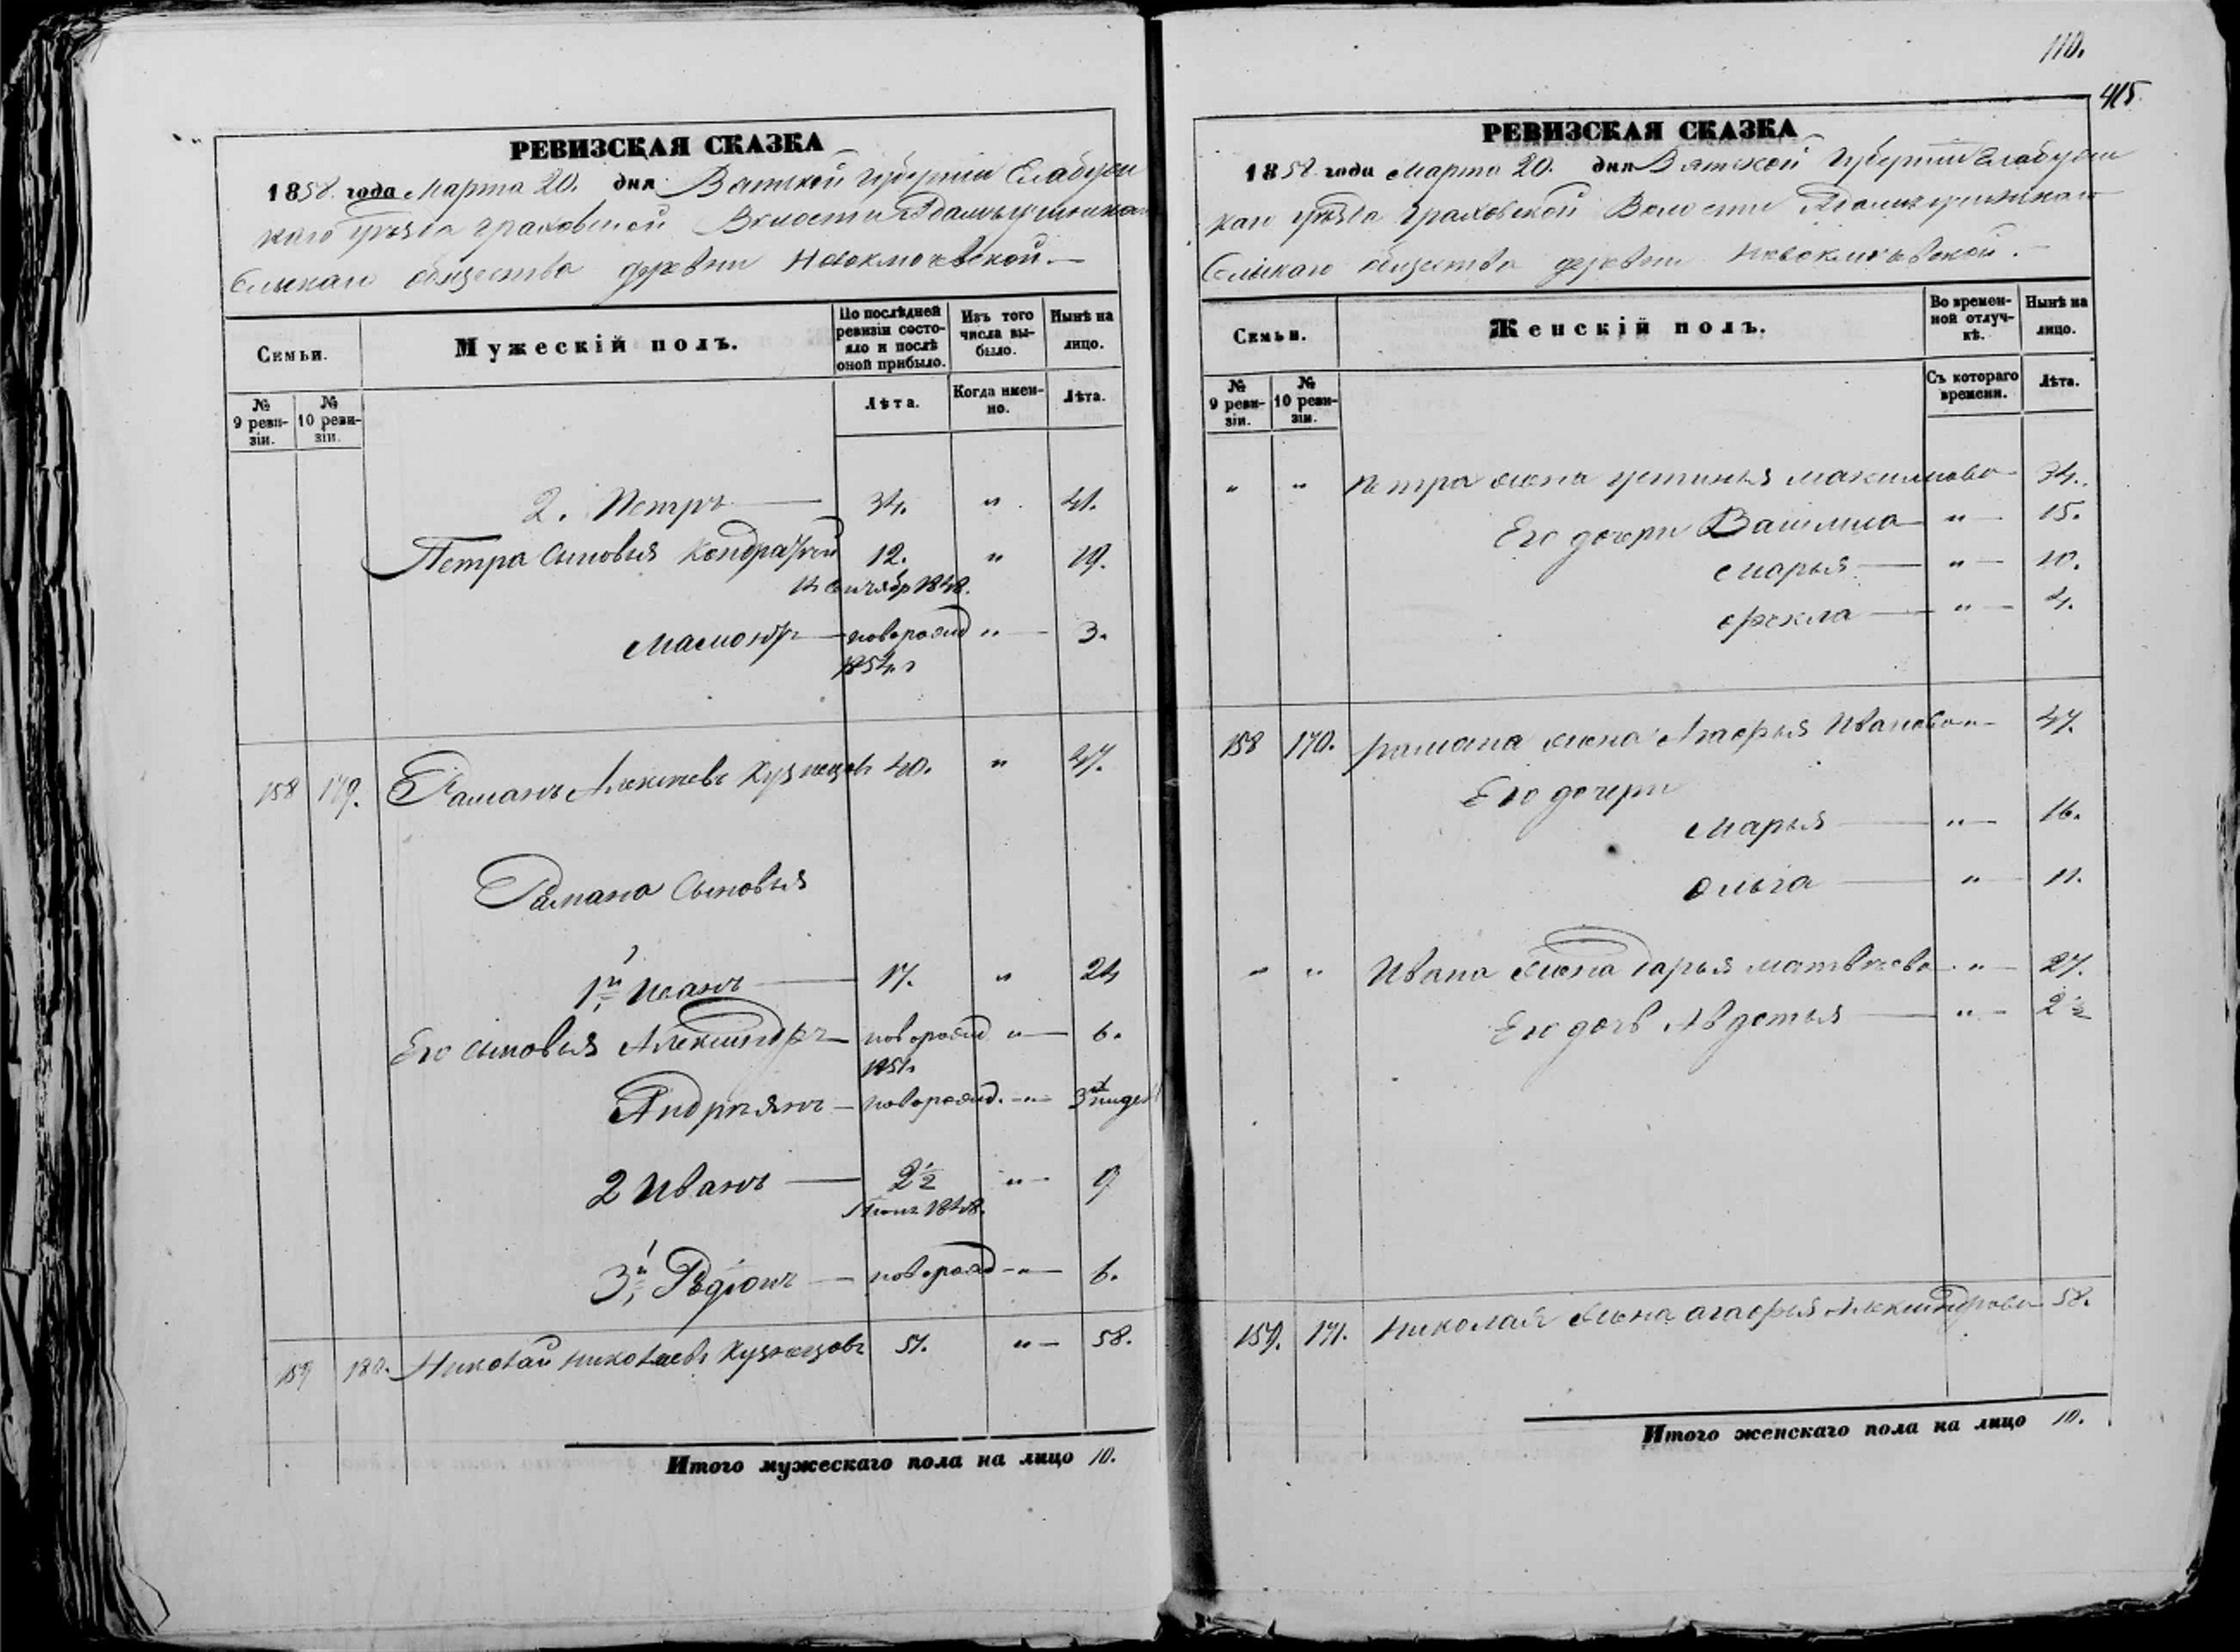 РЕВИЗСКАЯ СКАЗКА
1858 года Марта 20. дня Вятской Губернiи Елабужс
каго уѣзда Граховской Волости
Сельскаго общества деревни Новоключевской.
Семьи.
Мужескiй полъ.
По послѣдней ревизiи состояло и послѣ оной прибыло.
Изъ того числа выбыло.
Нынѣ на лицо.
№ 9 ревизiи.
№ 10 ревизiи.
Лѣта.
Когда именно.
Лѣта.
2. Петръ 34. " 41.
Петра сыновья Кондратiй 12. " 19.
1848.
Мамонтъ новорожд " 3.
1854. г
158 179. Романъ Алексѣевъ Кузнецовъ 40. " 47.
Романа Сыновья
1й Иванъ 17. " 24
Его сыновья Александръ новорожд " 6.
1851
Андреянъ новорожд. " 3 недел
2 Иванъ 2 1/2 " 9
1848.
3й Родiонъ новорожд " 6.
159 180. Николай Николаевъ Кузнецовъ 51. " 58.
Итого мужескаго пола на лицо 10.
110.
415
РЕВИЗСКАЯ СКАЗКА
1858 года Марта 20. дня Вятской Губернiи Елабужс
каго уѣзда Граховской Волости
Сельскаго общества деревни Новоключевской.
Семьи.
Женскiй полъ.
Во временной отлучкѣ.
Нынѣ на лицо.
№ 9 ревизiи.
№ 10 ревизiи.
Съ котораго времени.
Лѣта.
" " Петра жена Устинья Максимова 34.
Его дочери Василиса " 15.
Марья " 10.
Фекла " 4.
158 170. Романа жена Агафья Иванова " 47.
Его дочери
Марья " 16.
Ольга " 11.
" " Ивана жена Дарья Матвѣева " 27.
Его дочь Авдотья " 2 1/2
159. 171. Николая жена Агафья Александрова 58.
Итого женскаго пола на лицо 10.